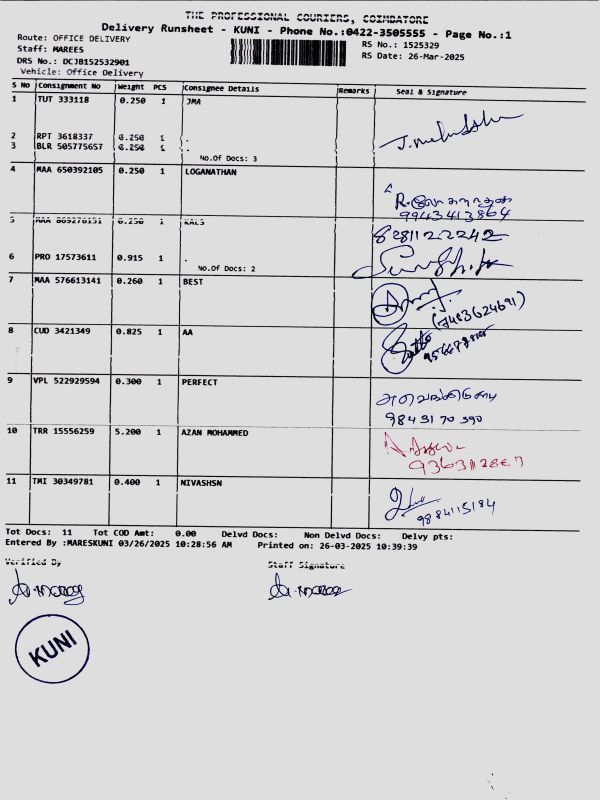 THE PROFESSIONAL COURIERS, COIMBATORE
Delivery Runsheet - KUNI - Phone No.:0422-3505555 - Page No.:1
Route: OFFICE DELIVERY RS No.: 1525329
Staff: MAREES RS Date: 26-Mar-2025
DRS No.: DCJB152532901
Vehicle: Office Delivery
S No Consignment No Weight PCS Consignee Details Remarks Seal & Signature
1 TUT 333118 0.250 1 JMA
2 RPT 3618337 0.250 1 .
3 BLR 505775657 0.250 1 .
No.Of Docs: 3
4 MAA 650392105 0.250 1 LOGANATHAN
9943413864
5 MAA 869276151 0.250 1 KALS
8281122242
6 PRO 17573611 0.915 1 .
No.Of Docs: 2
7 MAA 576613141 0.260 1 BEST
(7483624691)
8 CUD 3421349 0.825 1 AA
9 VPL 522929594 0.300 1 PERFECT
98431 70 390
10 TRR 15556259 5.200 1 AZAN MOHAMMED
11 TMI 30349781 0.400 1 NIVASHSN
9884115184
Tot Docs: 11 Tot COD Amt: 0.00 Delvd Docs: Non Delvd Docs: Delvy pts:
Entered By :MARESKUNI 03/26/2025 10:28:56 AM Printed on: 26-03-2025 10:39:39
Verified By Staff Signature
KUNI